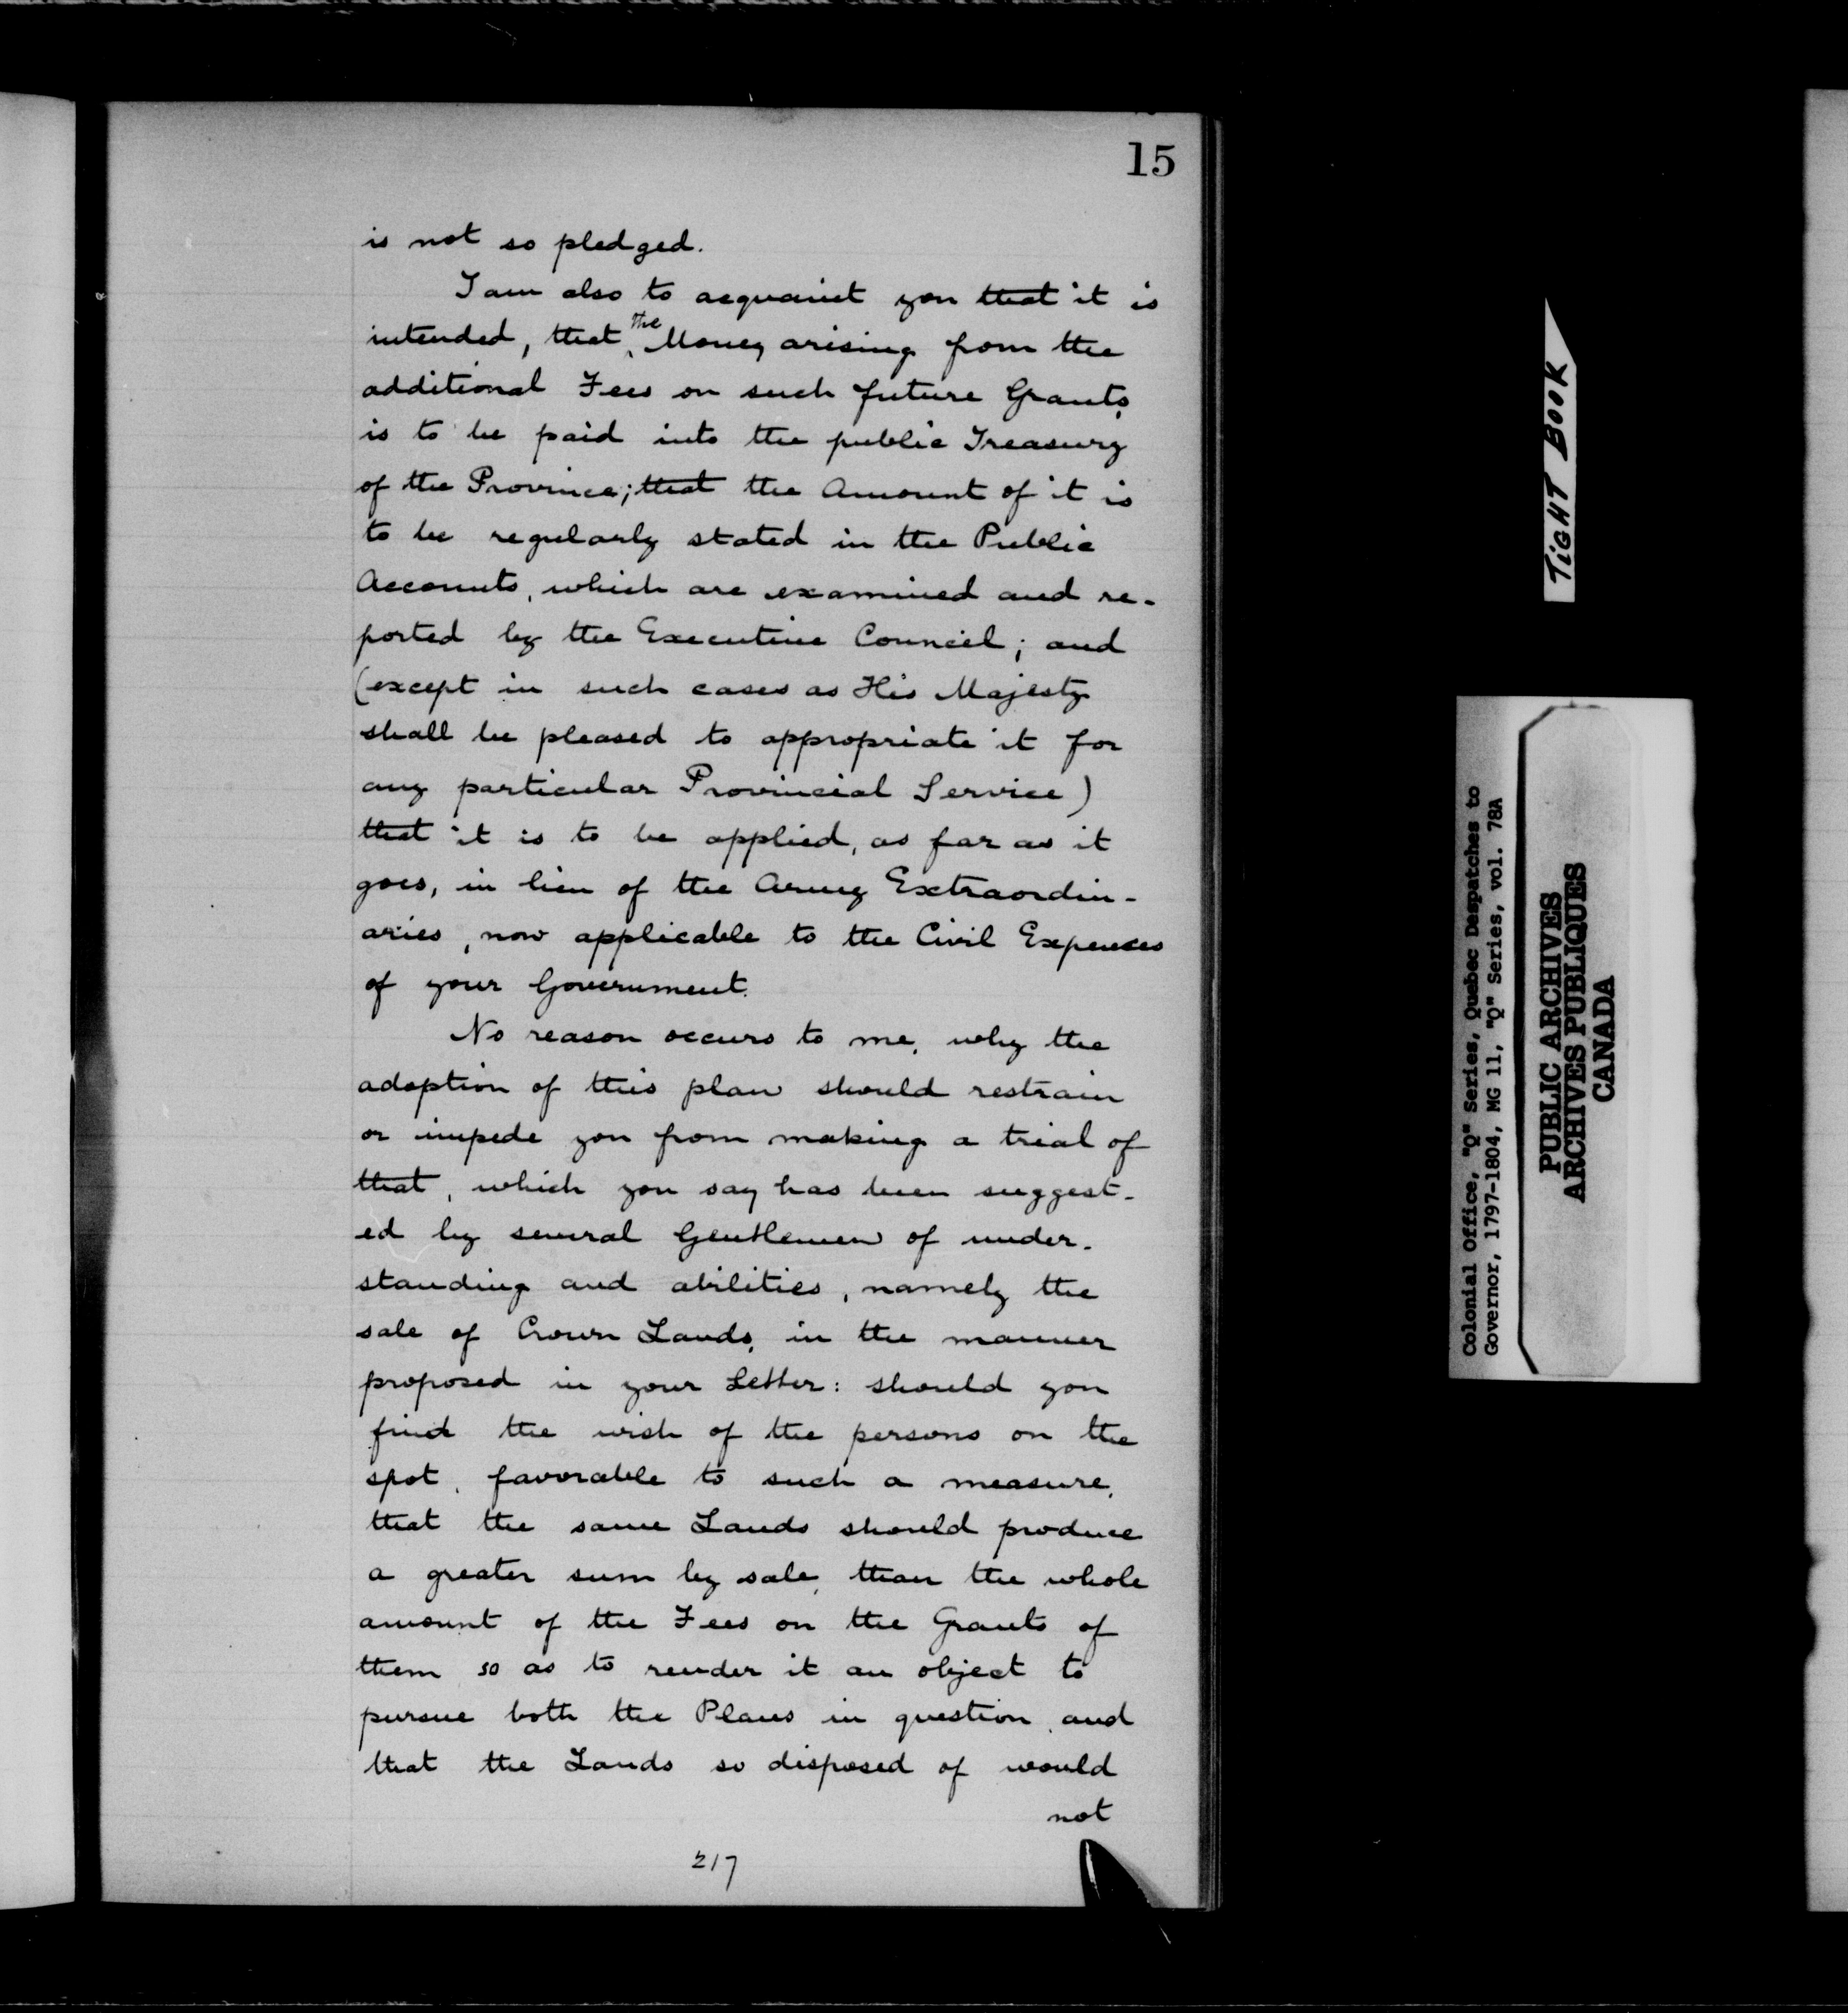 15
is not so pledged.
I am also to acquaint you that it is
intended, that the Money arising from the
additional Fees on such future Grants,
is to be paid into the public Treasury
of the Province; that the Amount of it is
to be regularly stated in the Public
Accounts, which are examined and re-
ported by the Executive Council; and
(except in such cases as His Majesty
shall be pleased to appropriate it for
any particular Provincial Service)
that it is to be applied, as far as it
goes, in lieu of the Army Extraordin-
aries, now applicable to the Civil Expenses
of your Government.
No reason occurs to me, why the
adoption of this plan should restrain
or impede you from making a trial of
that, which you say has been suggest-
ed by several Gentlemen of under-
standing and abilities, namely the
sale of Crown Lands, in the manner
proposed in your Letter: should you
find the wish of the persons on the
spot, favorable to such a measure,
that the same Lands should produce
a greater sum by sale, than the whole
amount of the Fees on the Grants of
them so as to render it an object to
pursue both the Plans in question, and
that the Lands so disposed of would
not
217
TIGHT BOOK
Colonial Office, "Q" Series, Quebec Despatches to
Governor, 1797-1804, MG 11, "Q" Series, vol. 78A
PUBLIC ARCHIVES
ARCHIVES PUBLIQUES
CANADA